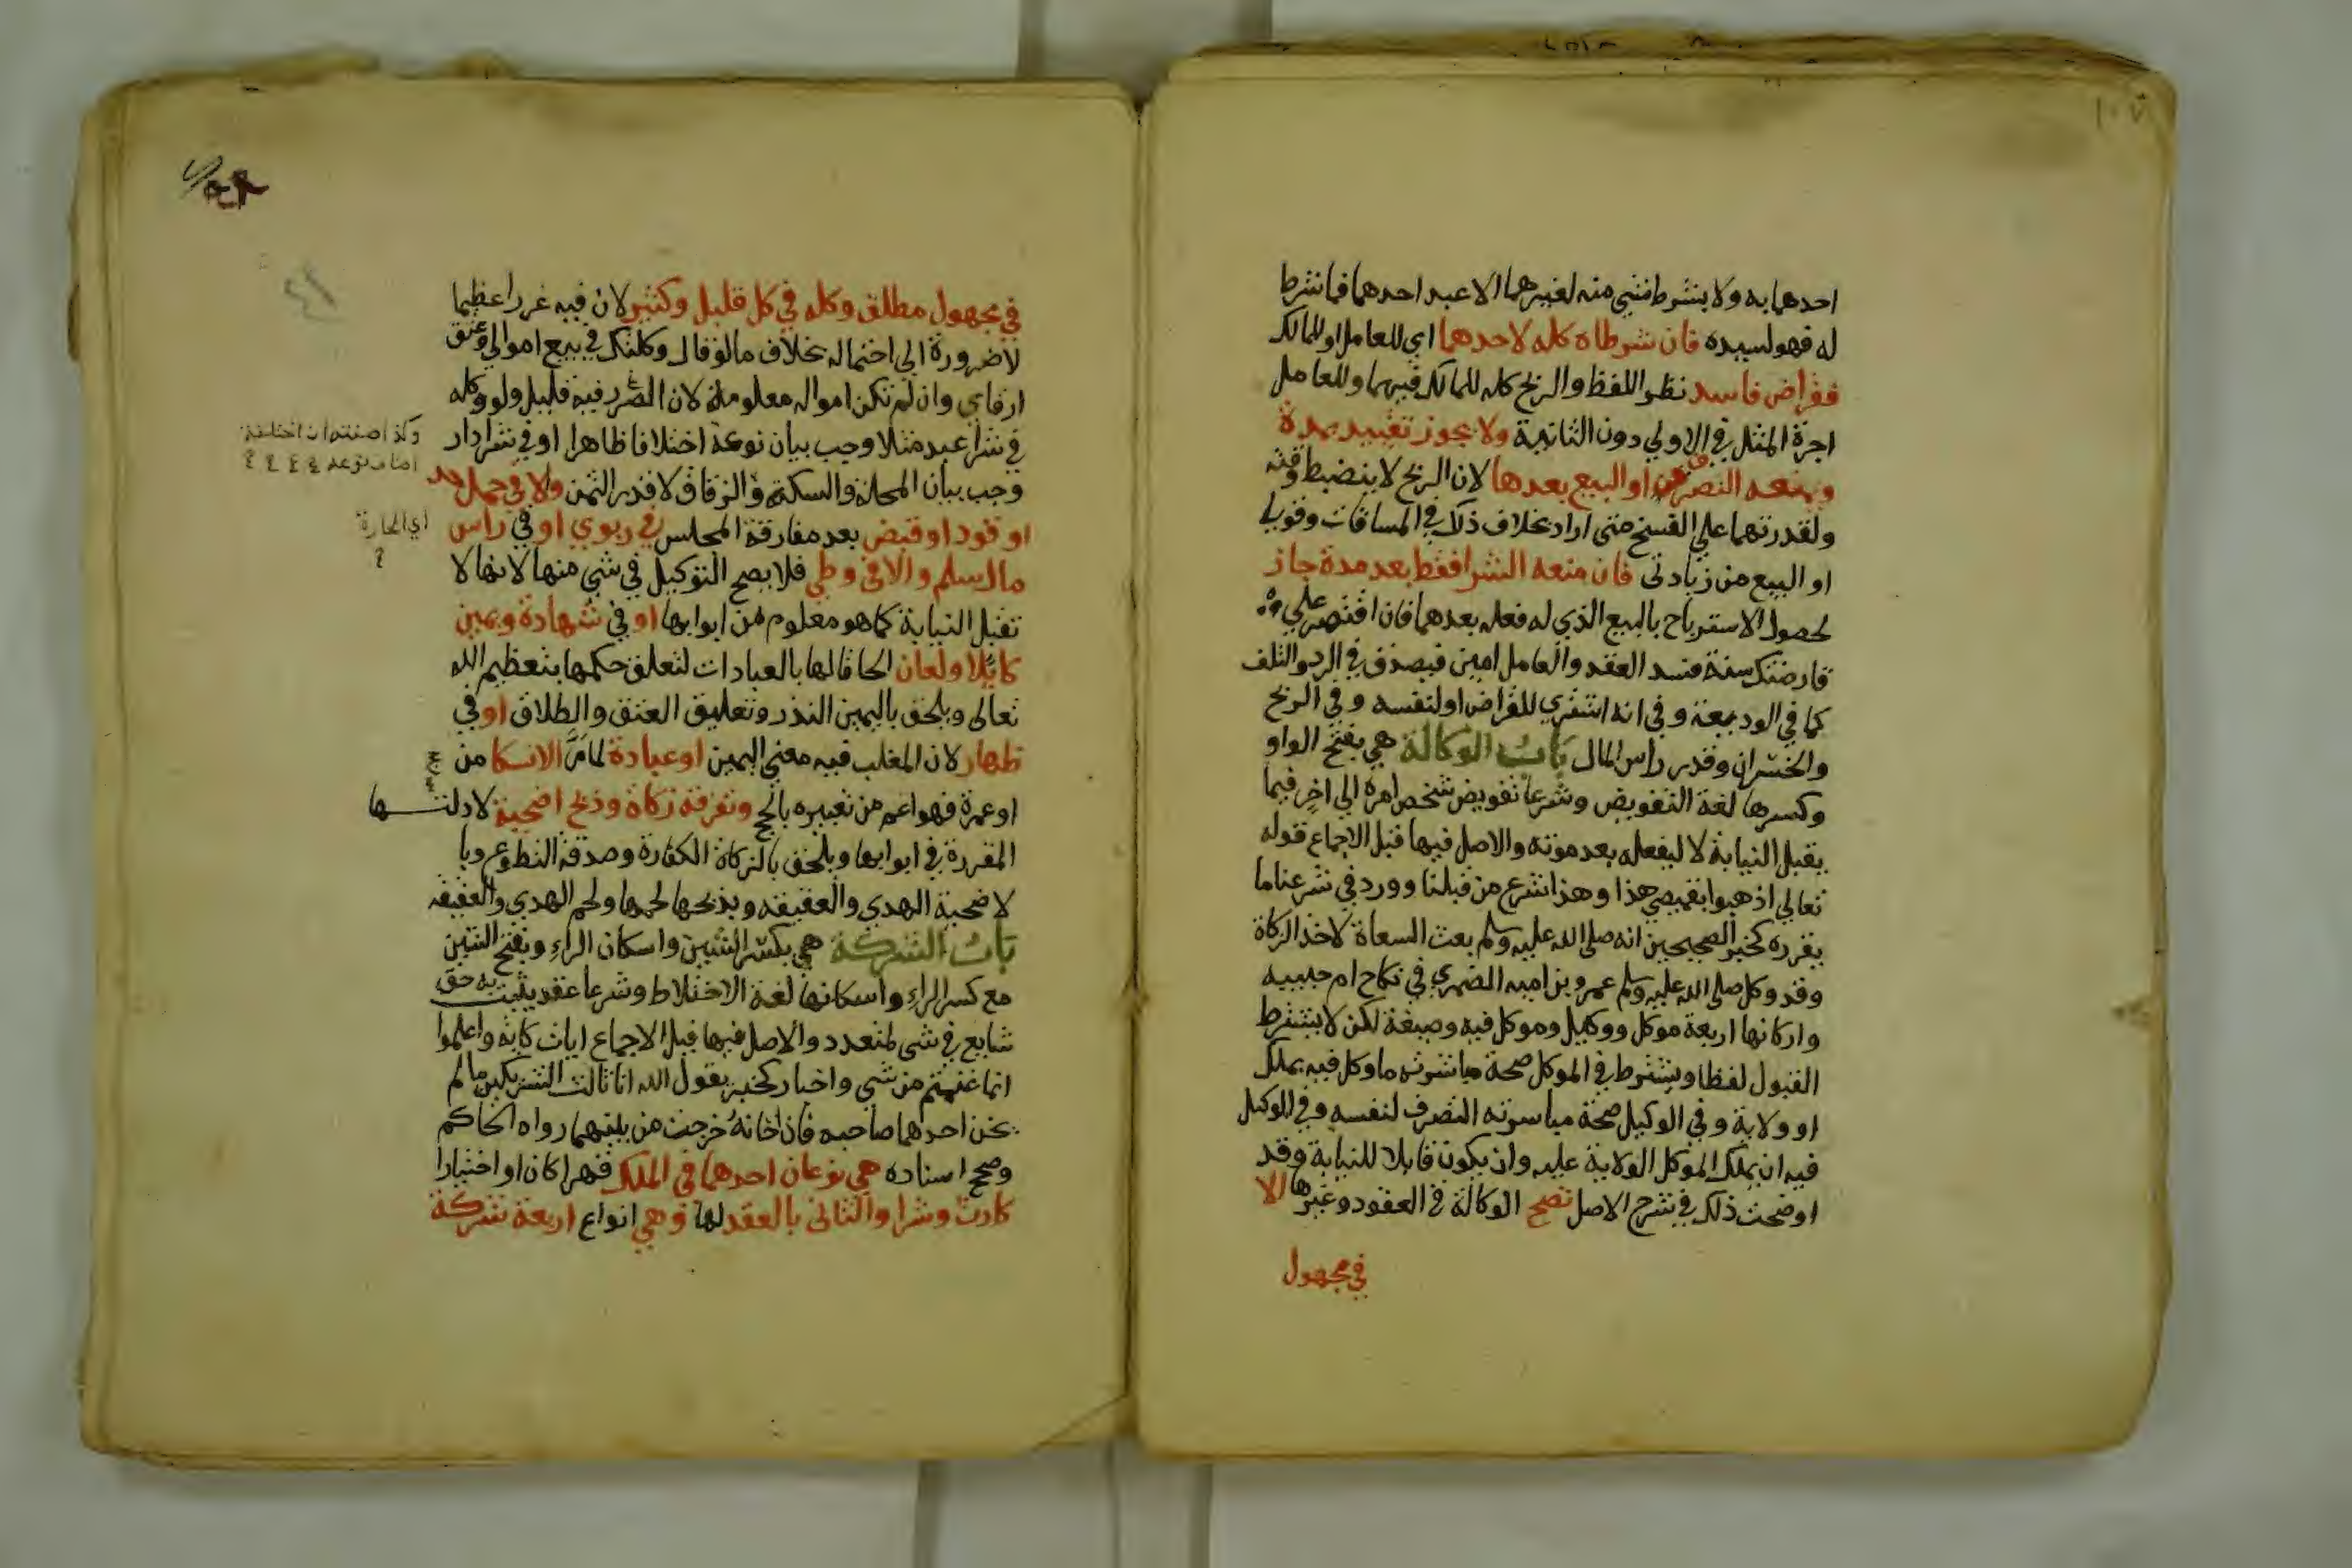 احدهما به ولا يشترط شي منه لغيرهما الا عبد احدهما فما شرط
له فهو لسيده فان شرطاه كله لاحدهما اي للعامل او للمالك
فقراض فاسد نظرا للفظ والربح كله للمالك فيهما وللعامل
اجرة المثل في الاولي دون الثانية ولا يجوز تقييد بمدة
وبمنعه التصرف او البيع بعدها لان الربح لا ينضبط وقته
ولقدرتهما علي الفسخ متي اراد بخلاف ذلك في المساقات وقولي
او البيع من زيادتي فان منعه الشرا فقط بعد مدة جاز
لحصول الاسترباح بالبيع الذي له فعله بعدها فان اقتصر علي
قارضتك سنة فسد العقد والعامل امين فيصدق في الرد والتلف
كما في الوديعة وفي انه اشتري للقراض او لنفسه وفي الربح
والخسران وقدر راس المال بابُ الوكالة هي بفتح الواو
وكسرها لغة التفويض وشرعا تفويض شخص امره الي اخر فيما
يقبل النيابة لا ليفعله بعد موته والاصل فيها قبل الاجماع قوله
تعالي اذهبوا بقميصي هذا وهذا شرع من قبلنا وورد في شرعنا ما
يقرره كخبر الصحيحين انه صلي الله عليه وسلم بعث السعاة لاخذ الزكاة
وقد وكل صلي الله عليه وسلم عمرو بن اميه الضمري في نكاح ام حبيبه
واركانها اربعة موكل ووكيل وموكل فيه وصيغة لكن لا يشترط
القبول لفظا ويشترط في الموكل صحة مباشرته ما وكل فيه بملك
او ولاية وفي الوكيل صحة مباشرته التصرف لنفسه وفي الموكل
فيه ان يملك الموكل الولاية عليه وان يكون قابلا للنيابة وقد
اوضحت ذلك في شرح الاصل تصح الوكالة في العقود وغيرها الا
في مجهول
في مجهول مطلق وكله في كل قليل وكثير لان فيه غررا عظيما
لا ضرورة الي احتماله بخلاف ما لو قال وكلتك في بيع اموالي وعتق
ارقاي وان لم تكن امواله معلومة لان الضرر فيه قليل ولو وكله
في شرا عبد مثلا وجب بيان نوعه اختلافا ظاهرا او في شرا دار
وكذا صفته ان اختلفت
اصناف نوعه
وجب بيان المحلة والسكة والزقاق لا قدر الثمن ولا في حمل حد
اي الحارة
او قود او قبض بعد مفارقة المجلس في ربوي او في راس
مال سلم والا في وطي فلا يصح التوكيل في شي منها لانها لا
تقبل النيابة كما هو معلوم من ابوابها او في شهادة ويمين
كايلا ولعان الحاقا لها بالعبادات لتعلق حكمها بتعظيم الله
تعالى ويلحق باليمين النذر وتعليق العتق والطلاق او في
ظهار لان المغلب فيه معني اليمين او عبادة لما مرَّ الا نسكا من
او عمرة فهو اعم من تعبيره بالحج وتفرقة زكاة وذبح اضحية لادلتها
المقررة في ابوابها ويلحق بالزكاة الكفارة وصدقة التطوع وبا
لاضحية الهدي والعقيقه وبذبحها لحمها ولحم الهدي والعقيقه
بابُ الشركة هي بكسر الشين واسكان الراء وبفتح الشين
مع كسر الراء واسكانها لغة الاختلاط وشرعا عقد يثبت به حق
شايع في شي لمتعدد والاصل فيها قبل الاجماع ايات كاية واعلموا
انما غنمتم من شي واخبار كخبر يقول الله انا ثالث الشريكين ما لم
يخن احدهما صاحبه فاذا خانهُ خرجت من بينهما رواه الحاكم
وصحح اسناده هي نوعان احدهما في الملك قهرا كان او اختيارا
كارث وشرا والثاني بالعقد لها وهي انواع اربعة شركة